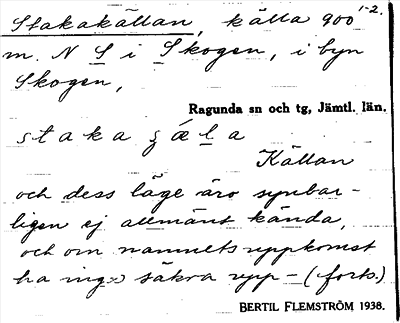 Stakakällan, källa 900 1-2.
m. N S i Skogen, i byn
Skogen,
Ragunda sn och tg, Jämtl. län.
Källan
och dess läge äro synbar-
ligen ej allmänt kända,
och om namnets uppkomst
ha säkra upp- (forts.)
BERTIL FLEMSTRÖM 1938.